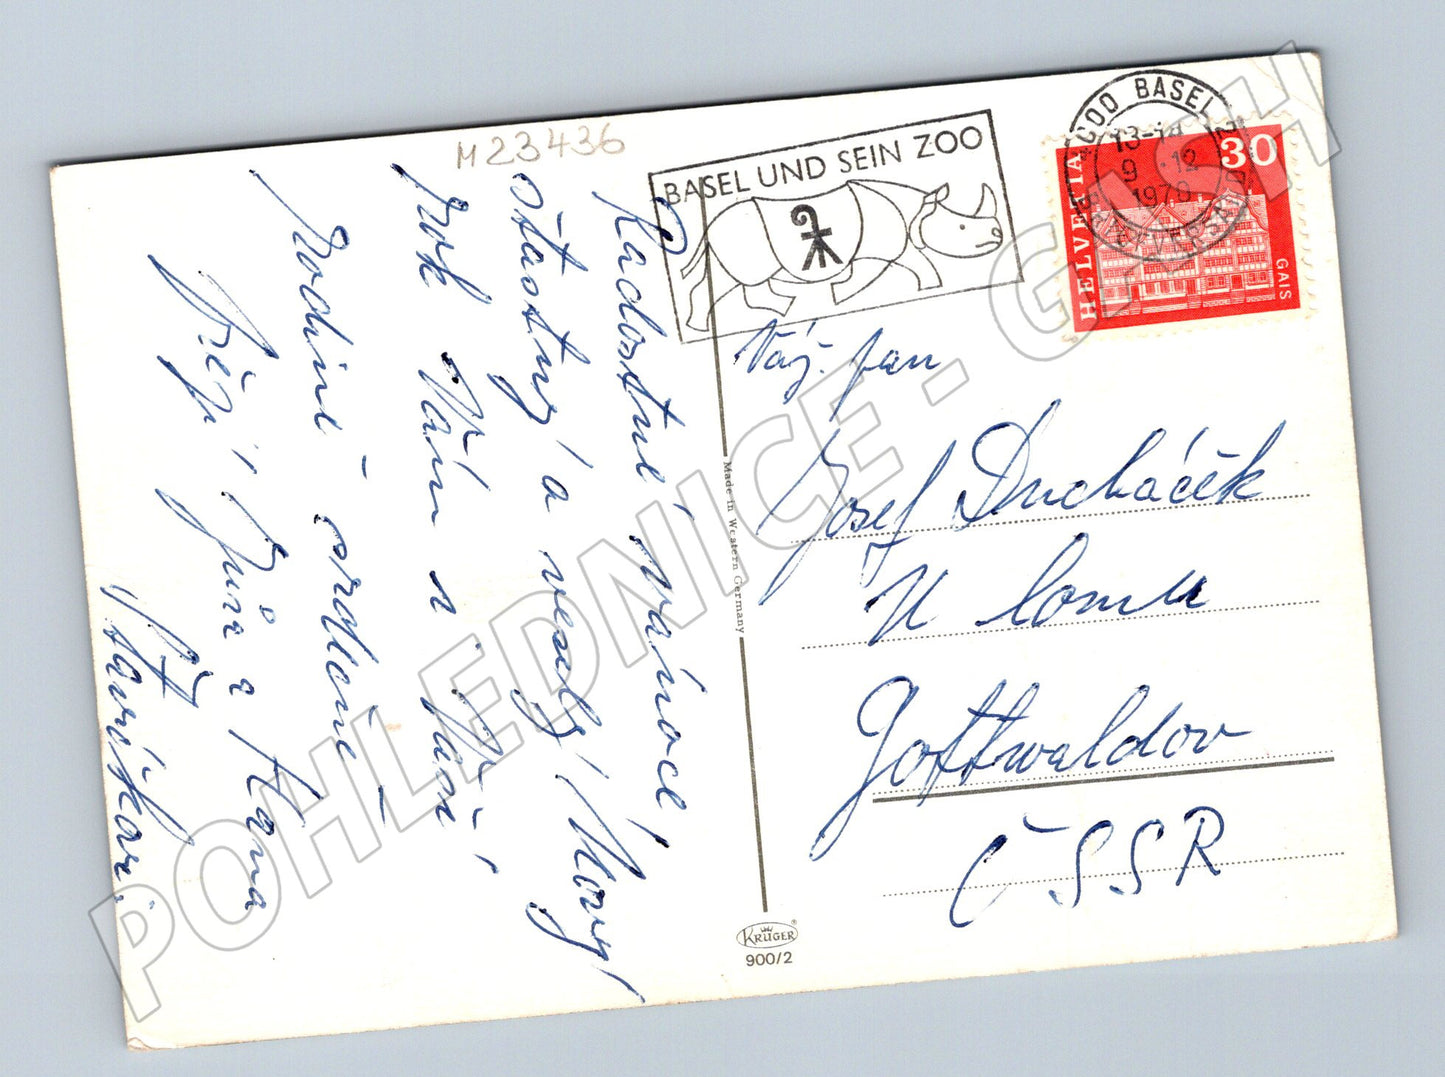 M23436
Radostné vánoce,
šťastný a veselý Nový
rok Vám i Vaší
rodině srdečně
přejí Jura a Hana
BASEL UND SEIN ZOO
4000 BASEL 2
13-14
9.12
1970
BRIEFVERSAND
HELVETIA
30
GAIS
Váž. pan
Josef Ducháček
U lomu
Gottwaldov
ČSSR
Made in Western Germany
KRÜGER
900/2
POHLEDNICE - GASH